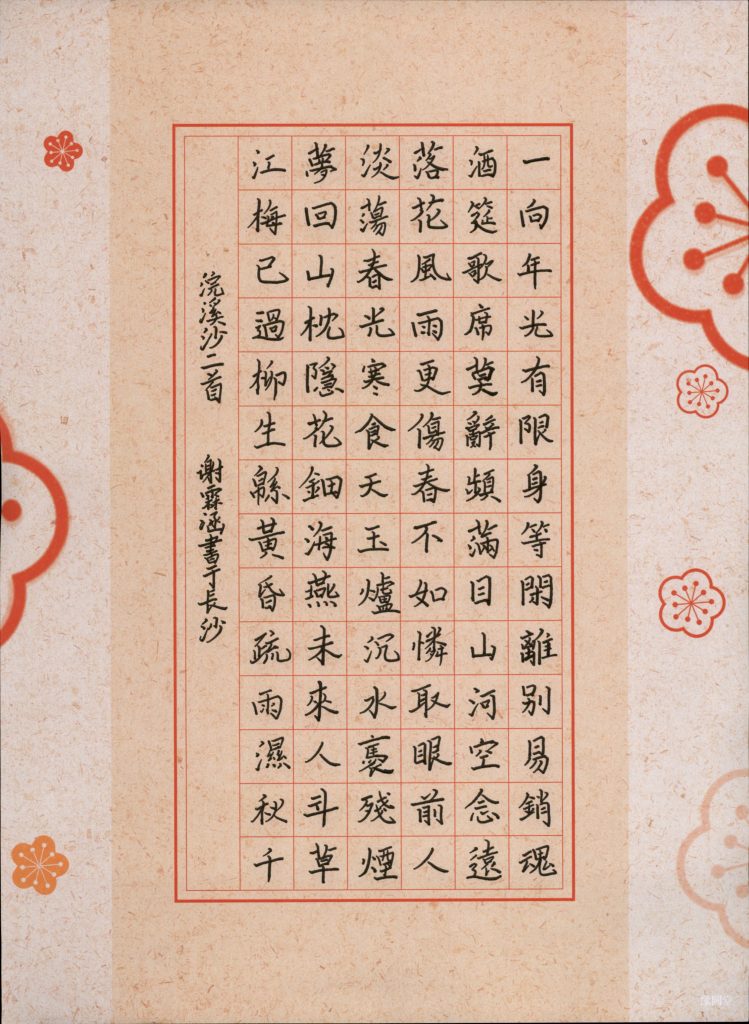 一向年光有限身等閑離别易銷魂
酒筵歌席莫辭頻滿目山河空念遠
落花風雨更傷春不如憐取眼前人
淡蕩春光寒食天玉爐沉水裊殘煙
夢回山枕隱花鈿海燕未來人斗草
江梅已過柳生緜黃昏疏雨濕秋千
浣溪沙二首 谢霖涵書于長沙